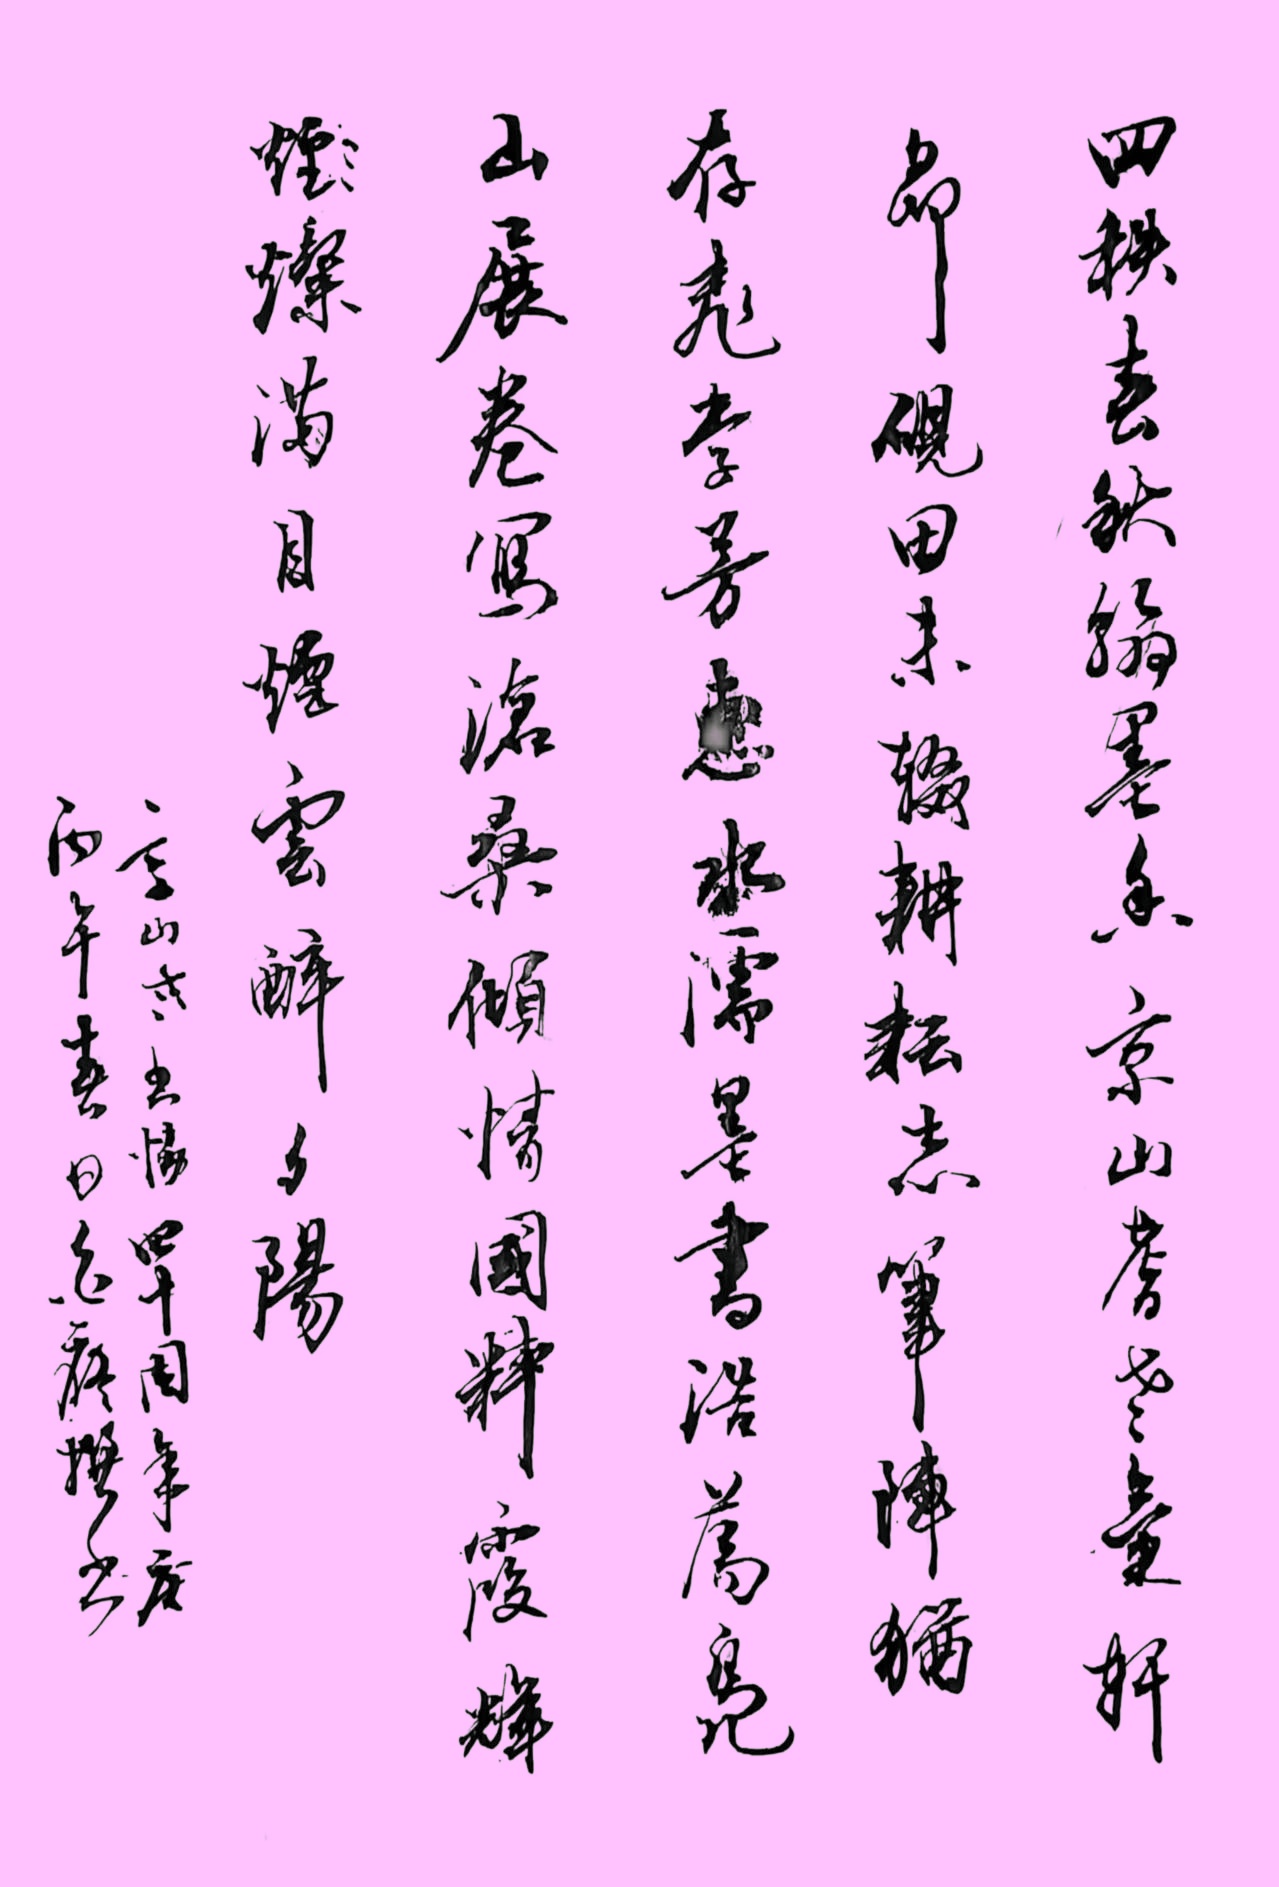 四秩春秋翰墨香京山耆老氣軒
昂硯田未輟耕耘志筆陣猶
存桃李芳惠水濡墨書浩蕩鳧
山展卷寫滄桑傾情國粹霞輝
煙燦滿目煙雲醉夕陽
京山老书協四十周年慶
丙午春日癡撰书